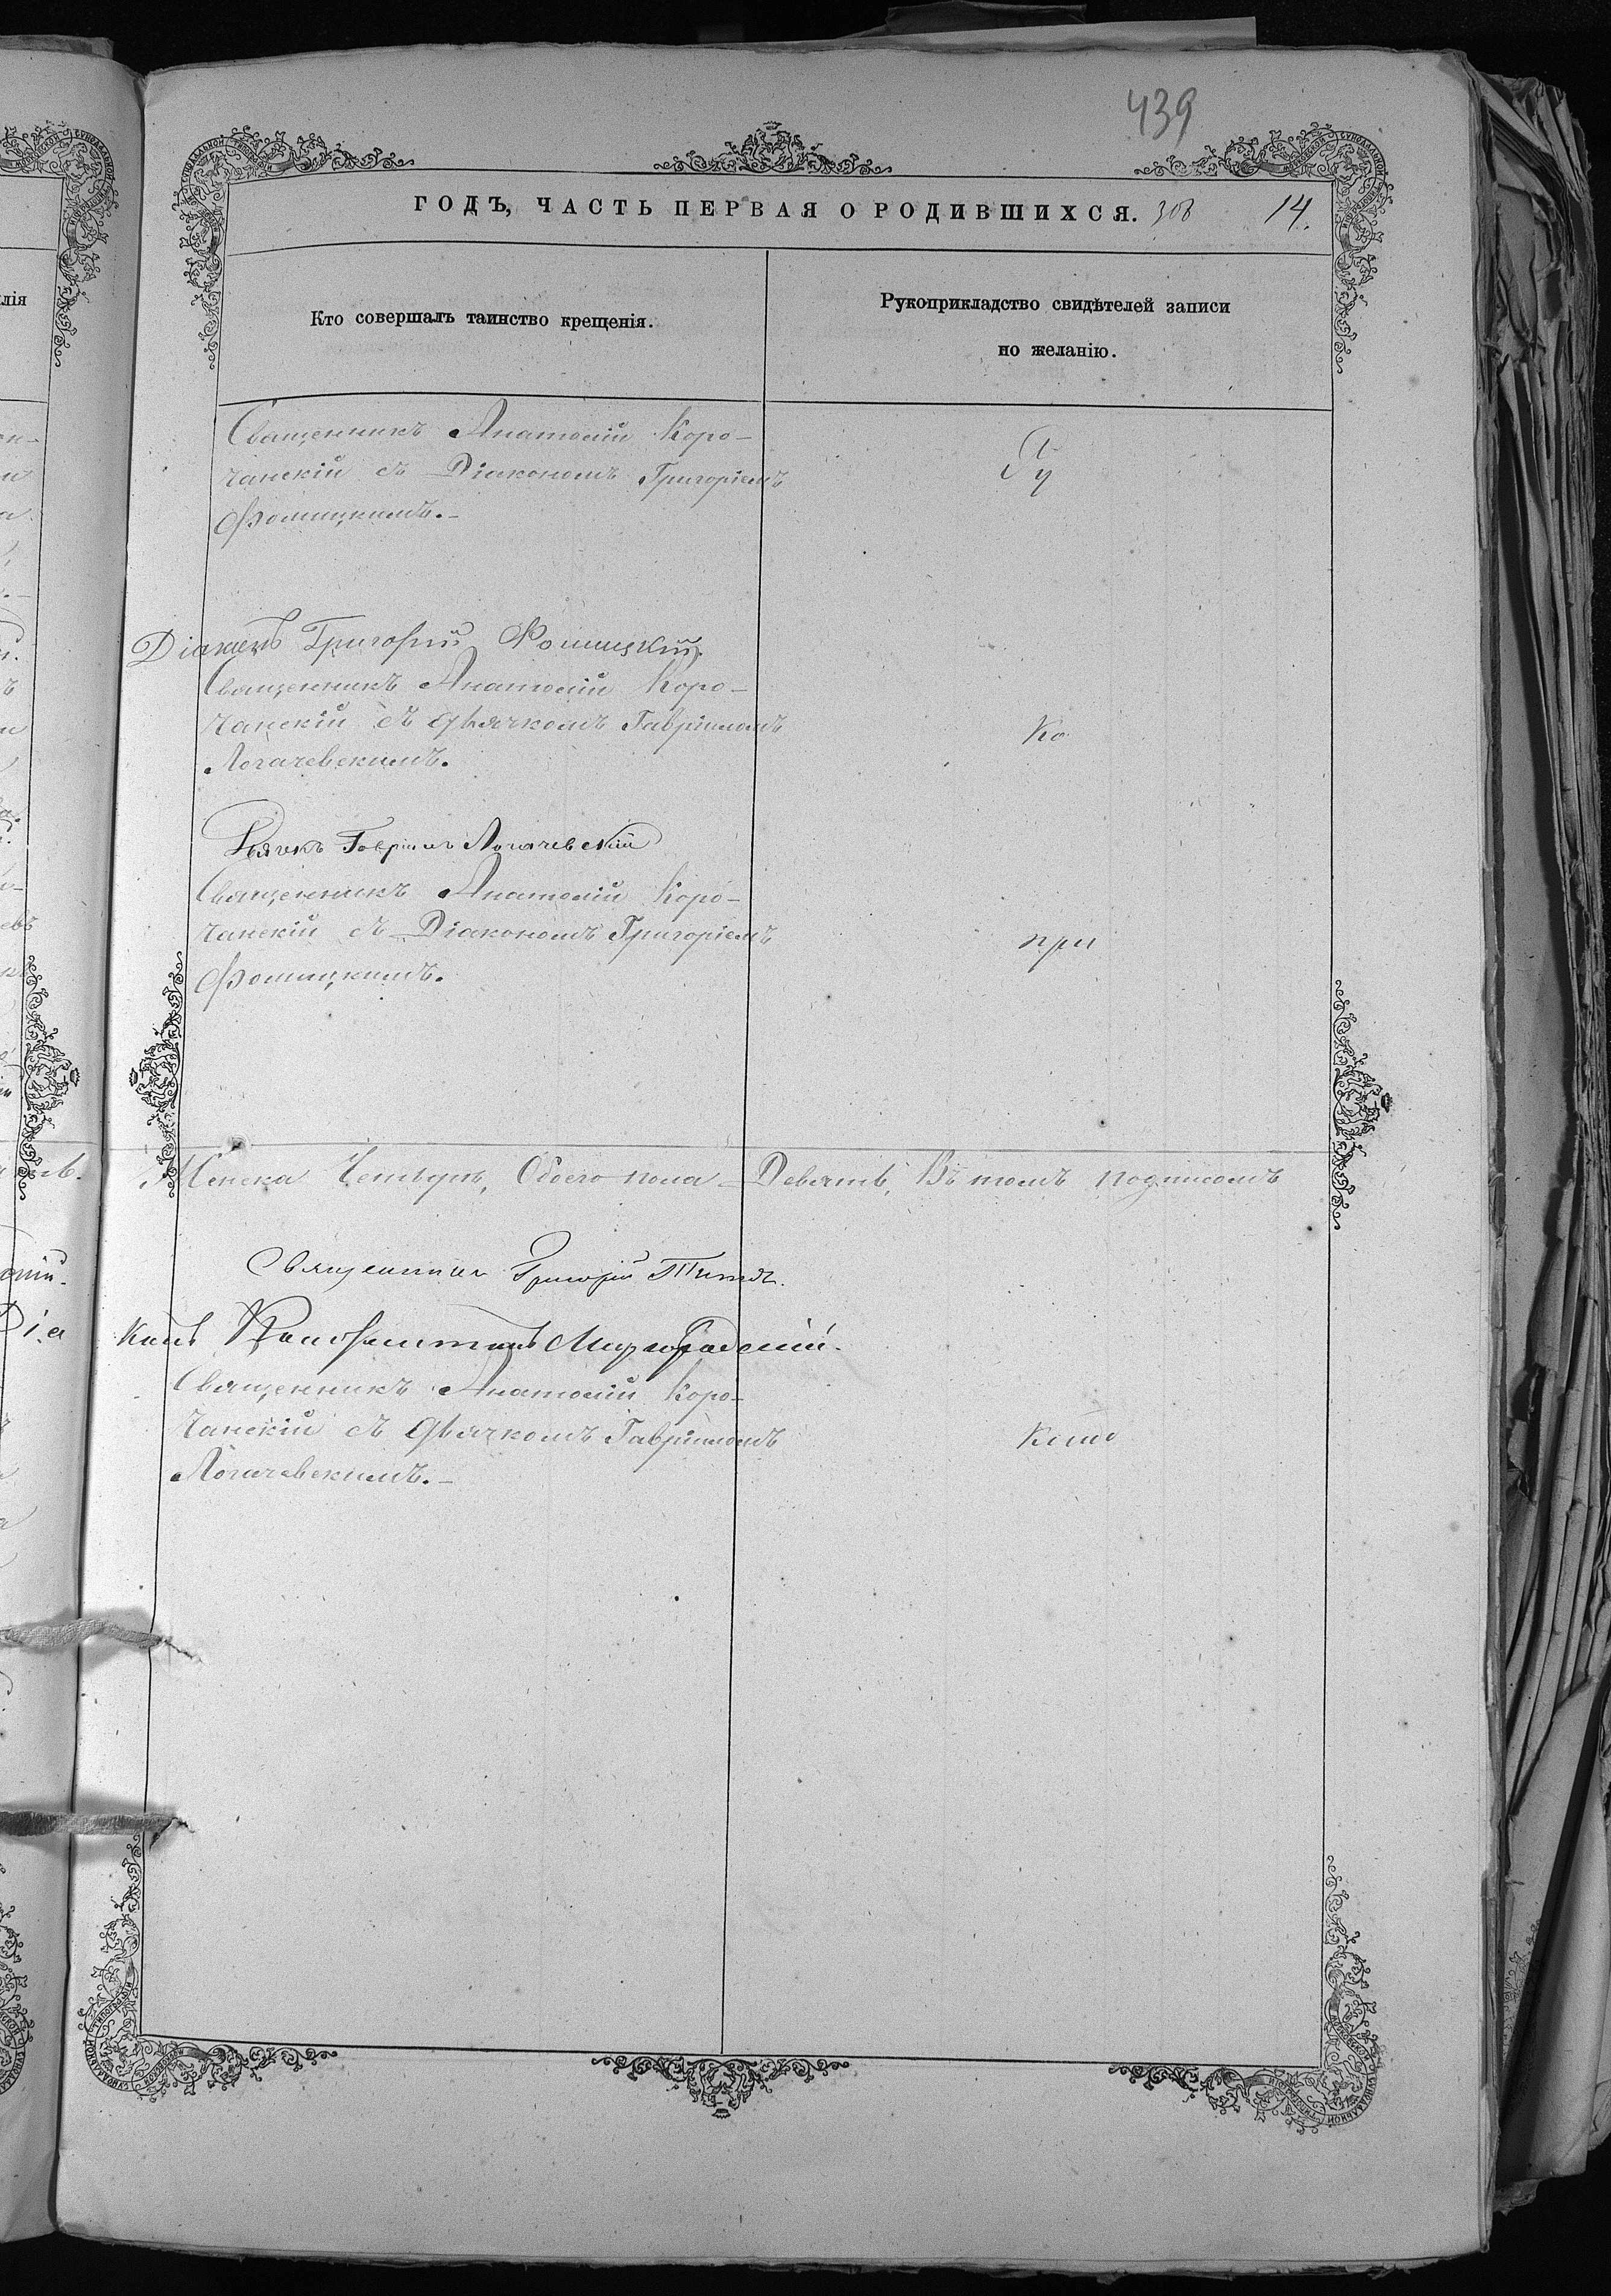 439
ГОДЪ, ЧАСТЬ ПЕРВАЯ О РОДИВШИХСЯ. 308 14.
Кто совершалъ таинство крещенія.
Рукоприкладство свидѣтелей записи
по желанію.
Священникъ Анатолій Коро-
чанскій съ Діакономъ Григоріемъ
Фомицкимъ.-
Су
Діаконъ Григорій Фомицкій.
Священникъ Анатолій Коро-
чанскій съ дьячкомъ Гавріиломъ
Логачевскимъ.
Ко
Дьячкъ Гавріилъ Логачевскій
Священникъ Анатолій Коро-
чанскій съ Діакономъ Григоріемъ
Фомицкимъ.
при
Женска Четыре, Обоего пола - Девять, Въ томъ подписомъ
Священникъ Григорій Титовъ.
конъ Мирногородскій.
Священникъ Анатолій Коро-
чанскій съ дьячкомъ Гавріиломъ
Логачевскимъ.-